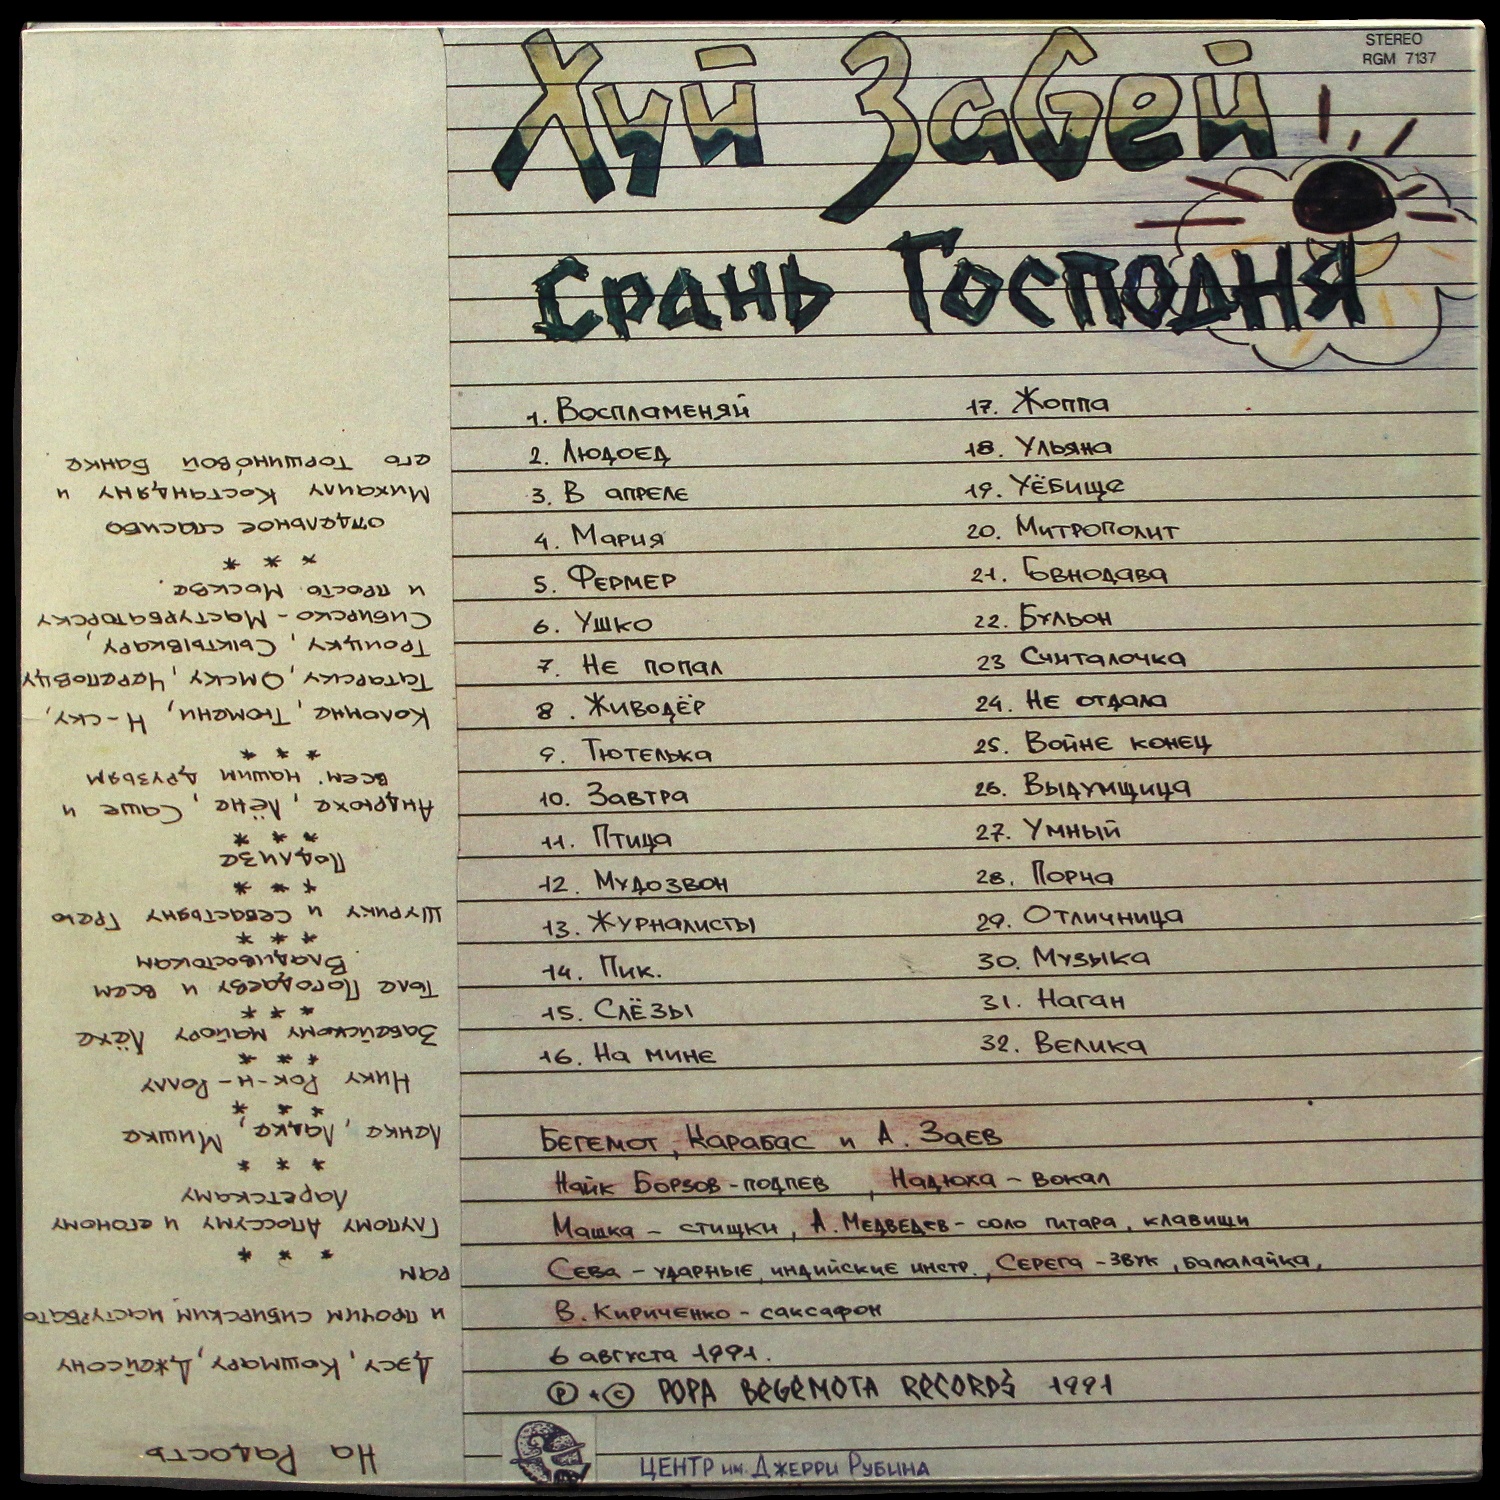 STEREO
RGM 7137
Хуй Забей
Срань Господня
1. Воспламеняй
2. Людоед
3. В апреле
4. Мария
5. Фермер
6. Ушко
7. Не попал
8. Живодёр
9. Тютелька
10. Завтра
11. Птица
12. Мудозвон
13. Журналисты
14. Пик.
15. Слёзы
16. На мине
17. Жоппа
18. Ульяна
19. Уёбище
20. Митрополит
21. Говнодава
22. Бульон
23 Считалочка
24. Не отдала
25. Войне конец
26. Выдумщица
27. Умный
28. Порча
29. Отличница
30. Музыка
31. Наган
32. Велика
Бегемот, Карабас и А. Заев
Найк Борзов - подпев, Надюха - вокал
Машка - стищки, А. Медведев - соло гитара, клавищи
Сева - ударные, индийские инстр., Серега - звук, балалайка,
В. Кириченко - саксафон
6 августа 1991.
Ⓟ + © POPA BEGEMOTA RECORDS 1991
ЦЕНТР им. Джерри Рубина
На Радость
Дэсу, Кошмару, Джейсону
и прочим сибирским мастурбато
рам
* * *
Глупому Апоссуму и егоному
Ларетскаму
* * *
Ленке, Ладке, Мишке
* * *
Нику Рок-н-Роллу
* * *
Забейскому майору Лёхе
* * *
Толе Погодаеву и всем
Владивостокам
* * *
Шурику и Севастьяну Грею
* * *
Подлизе
* * *
Андрюхе, Лёне, Саше и
всем нашим друзьям
* * *
Коломне, Тюмени, Н-ску,
Татарску, Омску, Череповцу
Троицку, Сыктывкару,
Сибирско-Мастурбаторску
и просто Москве.
* * *
отдельное спасибо
Михаилу Костандяну и
его Торшиновой Банке